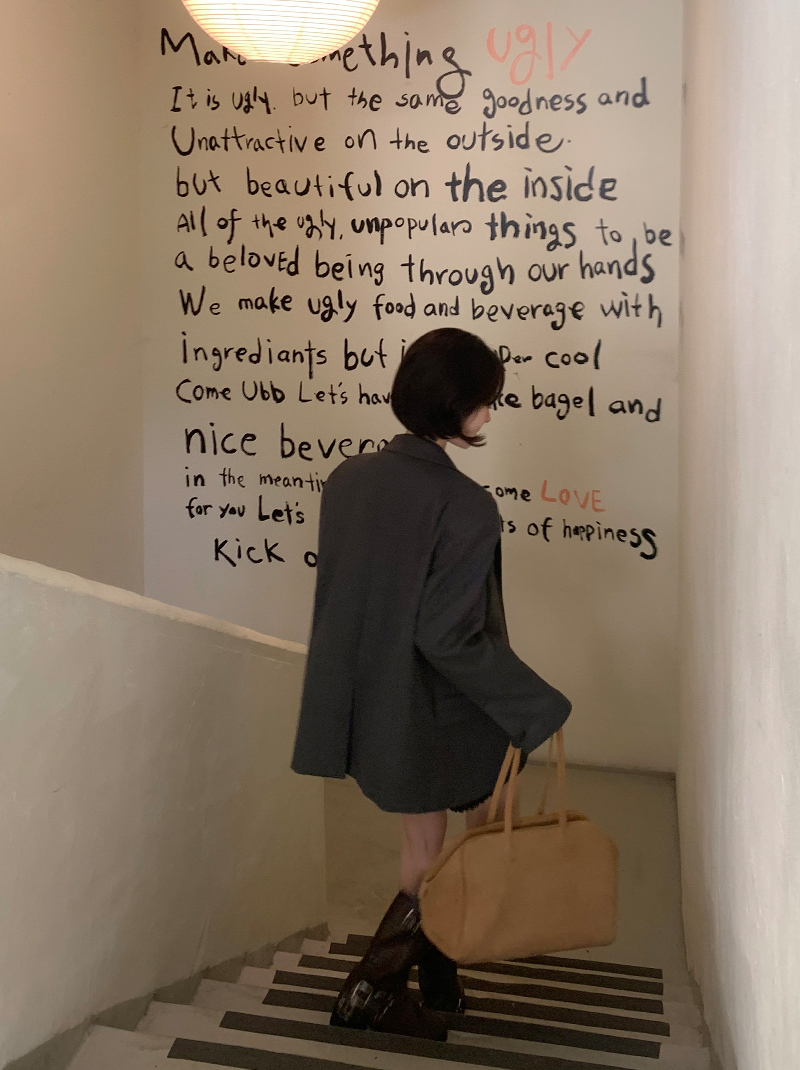 Make something ugly
It is ugly. but the same goodness and
Unattractive on the outside.
but beautiful on the inside
All of the ugly, unpopular things to be
a beloved being through our hands
We make ugly food and beverage with
ingrediants but i per cool
Come Ubb Let's hav ke bagel and
nice bevera
in the meantim ome LOVE
for you Let's ts of happiness
Kick o